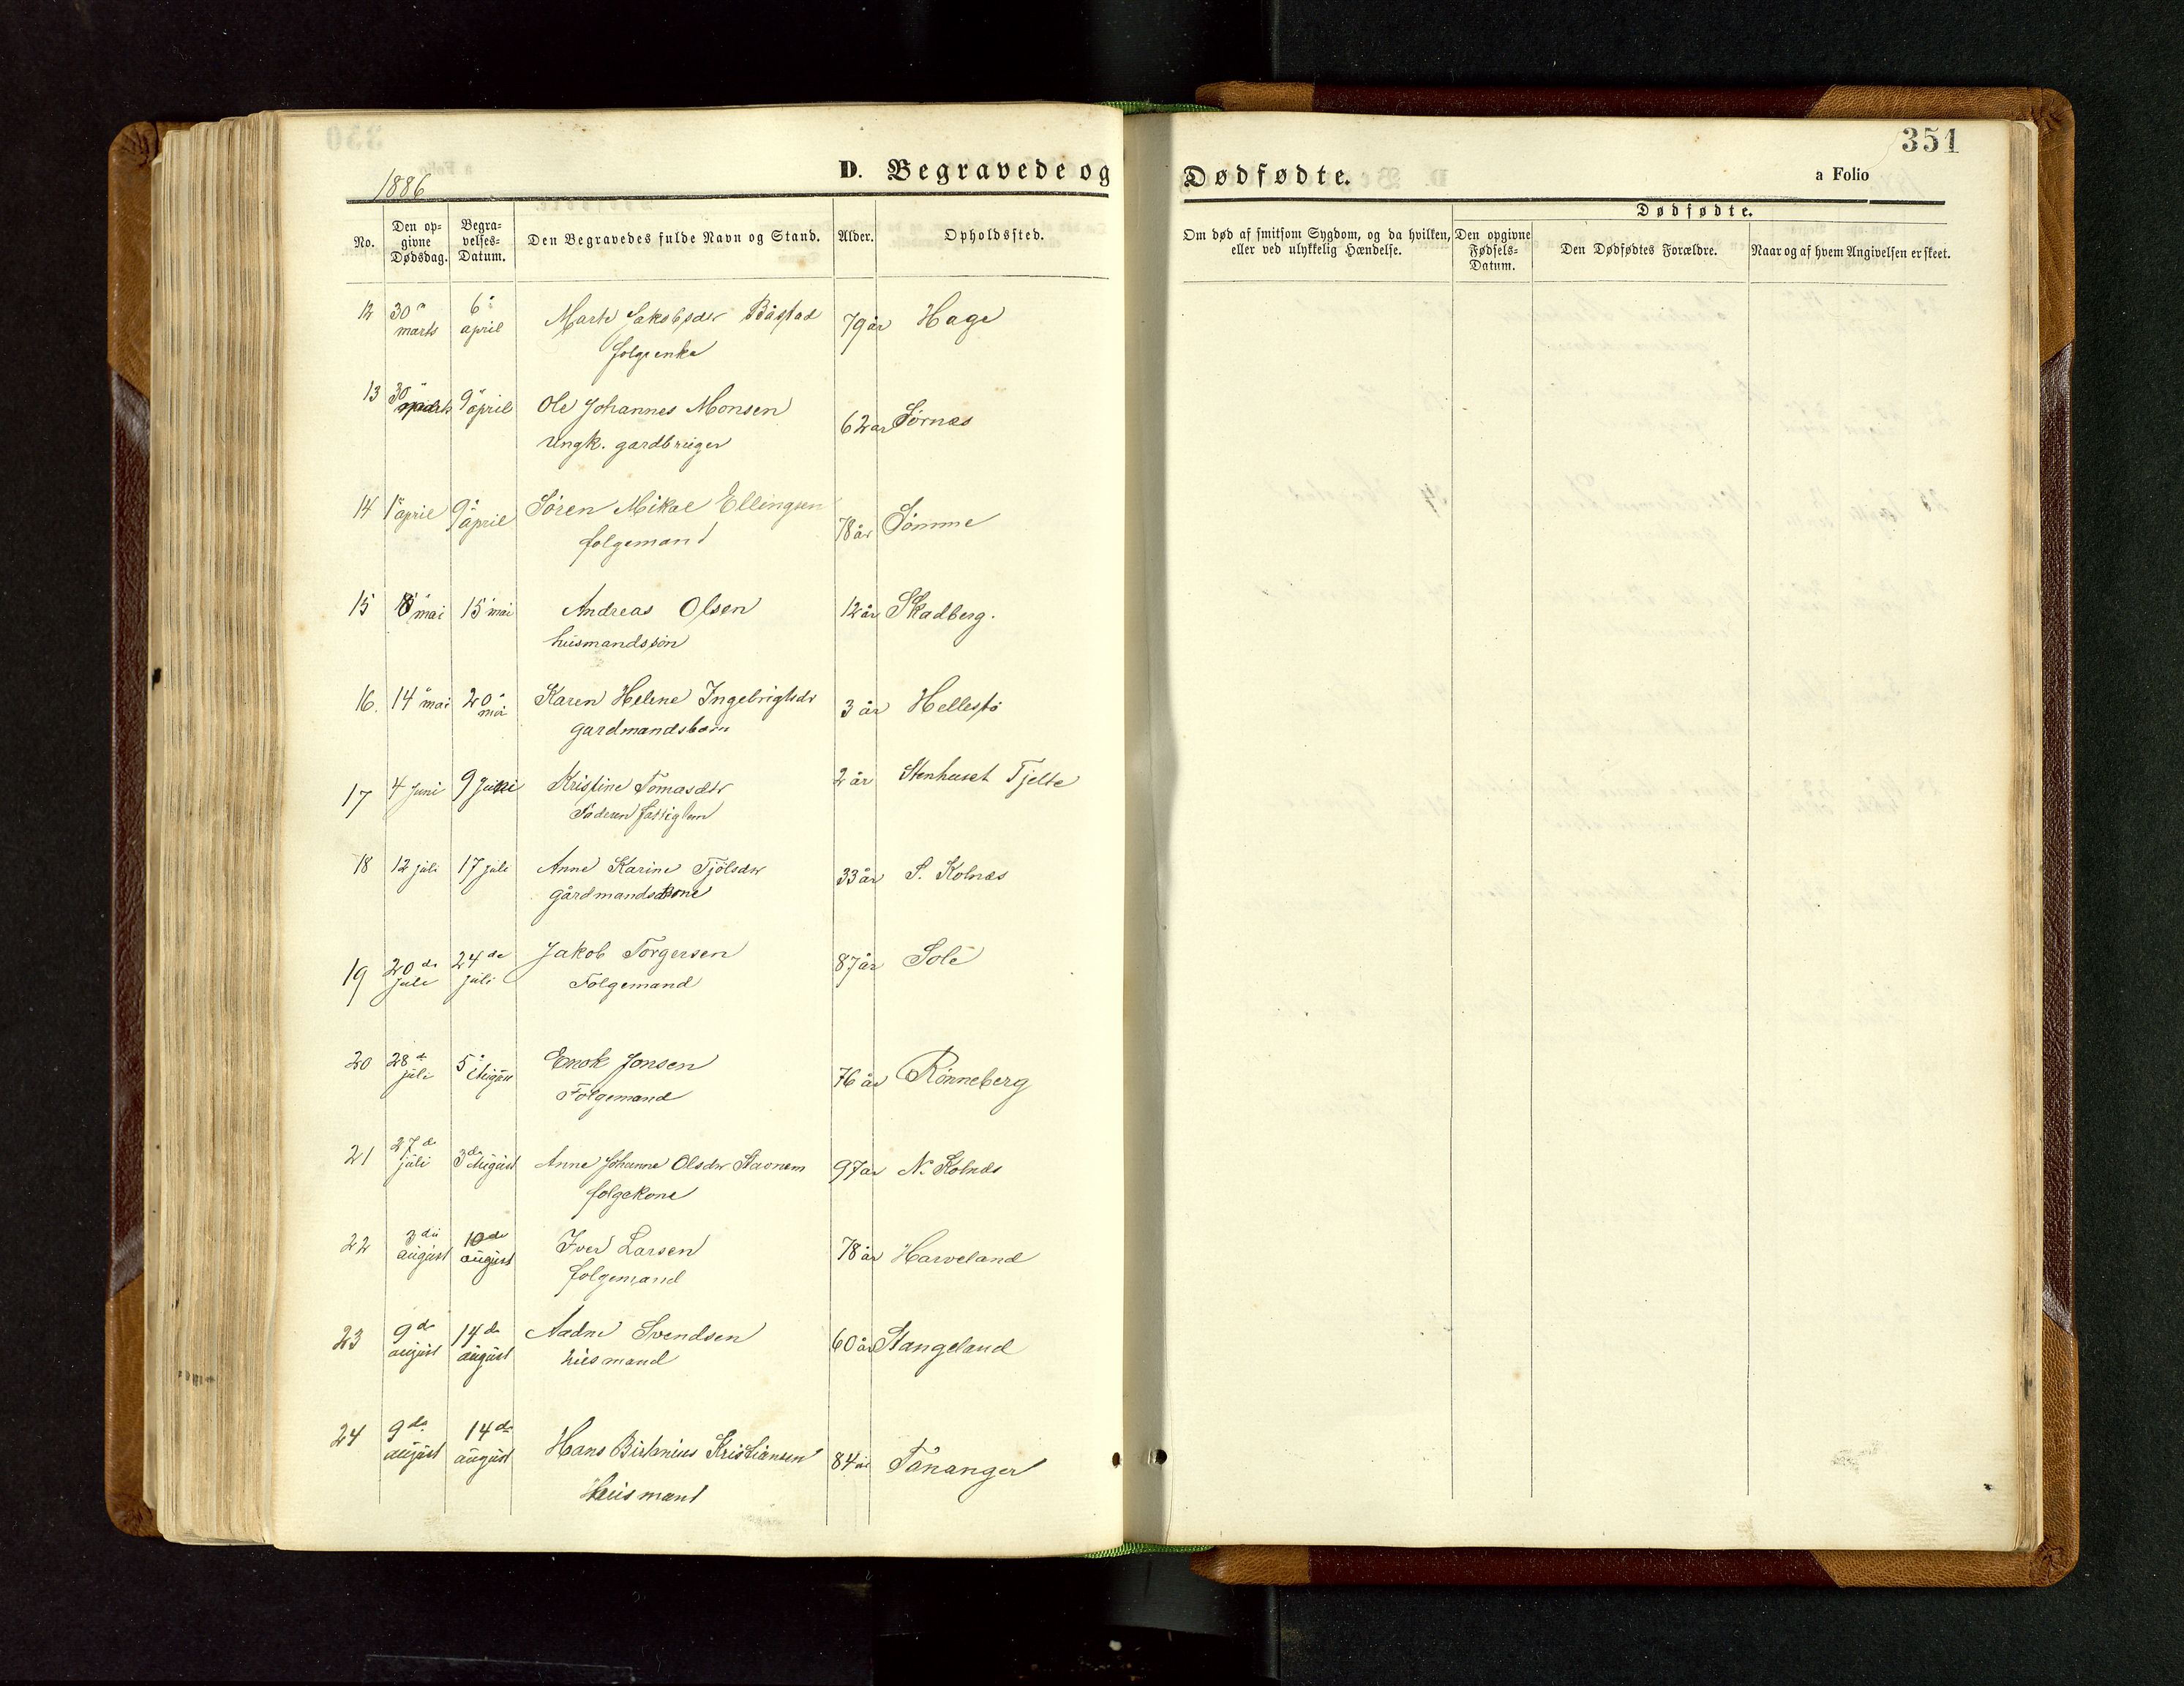 351
1886
D. Begravede og Dødfødte.
a Folio
No.
Den op-
givne
Dødsdag.
Begra-
velses-
Datum.
Den Begravedes fulde Navn og Stand.
Alder.
Opholdssted.
Om død af smitsom Sygdom, og da hvilken,
eller ved ulykkelig Hændelse.
Dødfødte.
Den opgivne
Fødsels-
Datum.
Den Dødfødtes Forældre.
Naar og af hvem Angivelsen er skeet.
12 30 marts 6 april Marte Jakobsdr Båstad 79 år Hage
folgeenke
13 30 marts 9 april Ole Johannes Monsen 62 ar Sørnæs
Ungk. gardbruger
14 1 april 9 april Søren Mikal Ellingsen 78 år Sömme
folgemand
15 8 mai 15 mai Andreas Olsen 12 år Skadberg.
husmandssön
16. 14 mai 20 mai Karen Helene Ingebrigtsdr 3 år Hellestö
gardmandsbarn
17 4 Juni 9 Juni Kristine Tomasdtr 2 år Stenhuset Tjelte
Faderen fattiglem
18 12 juli 17 juli Anne Karine Tjölsdtr 33 år S. Kolnæs
gårdmandskone
19 20de juli 24de juli Jakob Torgersen 87 år Sole
Folgemand
20 28d juli 5 Augus Enok Jonsen 76 år Rönneberg
Folgemand
21 27d juli 3d August Anne Johanne Olsdr Stavnem 97 ar N. Kolnæs
folgekone
22 3die august 10de august Iver Larsen 78 år Harveland
folgemand
23 9de august 14de august Aadne Svendsen 60 år Stangeland
husmand
24 9de august 14de august Hans Kristiansen 84 år Tananger
Husmand